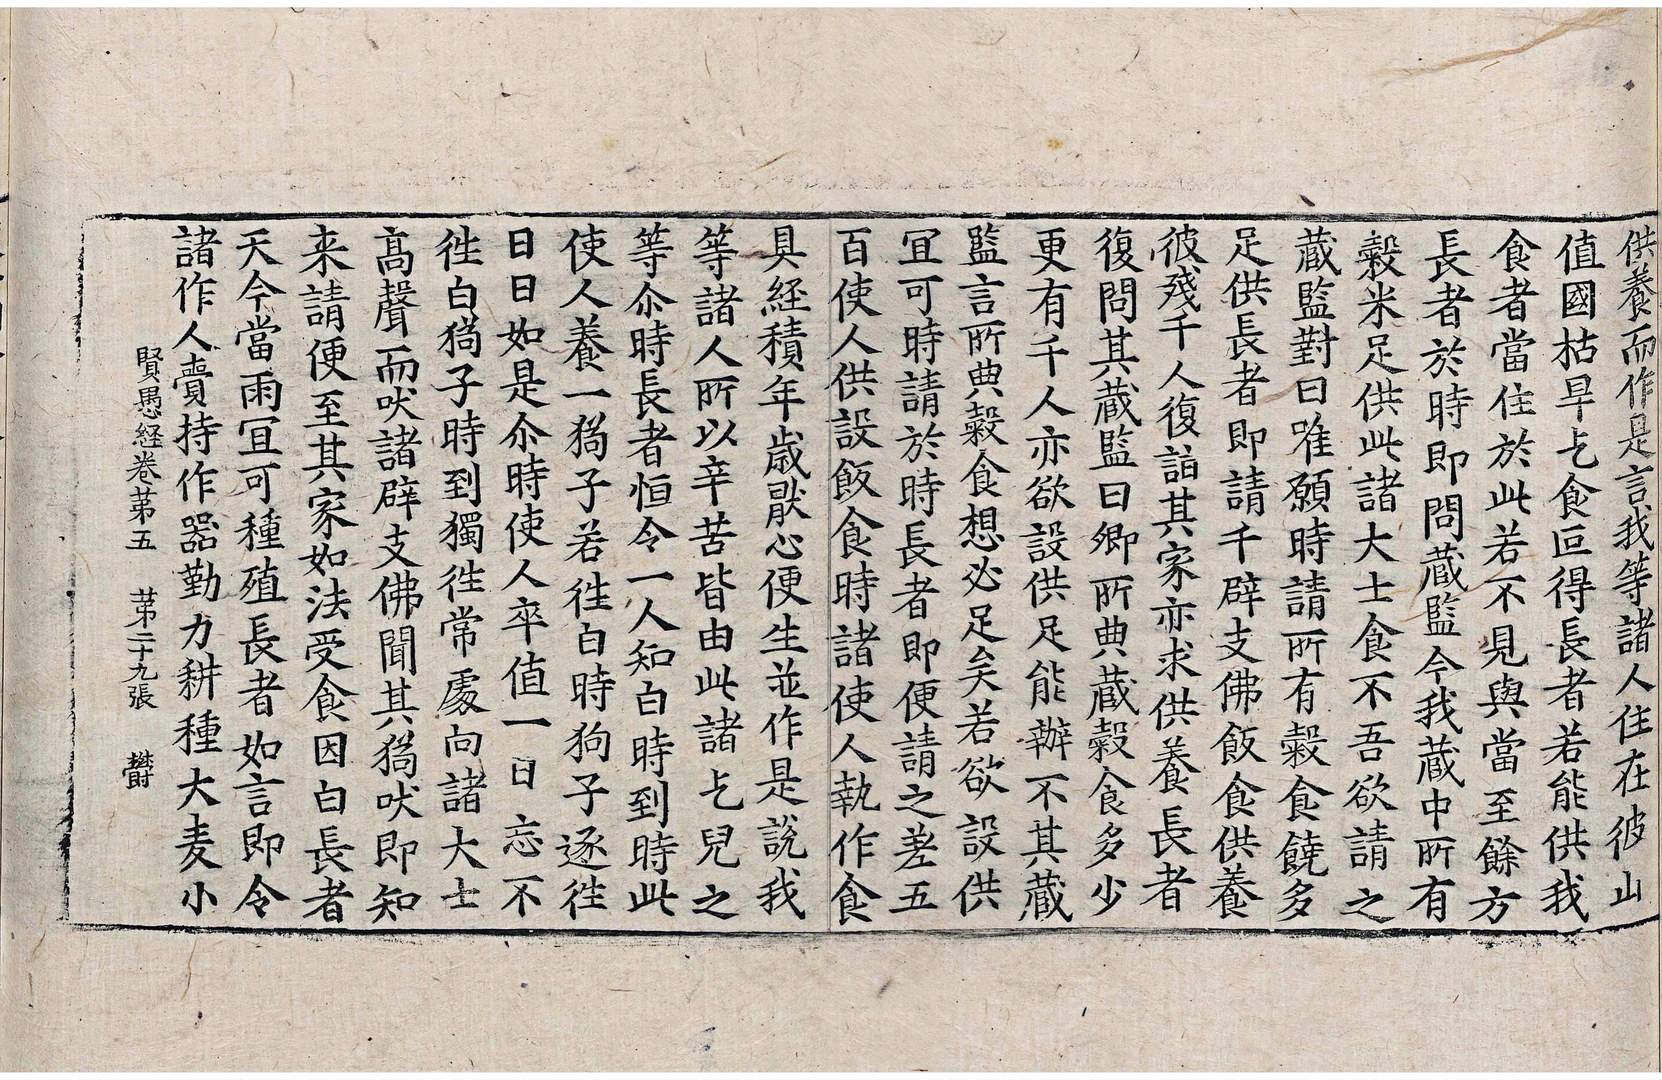 供養而作是言我等諸人住在彼山
值國枯旱乞食叵得長者若能供我
食者當住於此若不見與當至餘方
長者於時即問藏監今我藏中所有
穀米足供此諸大士食不吾欲請之
藏監對曰唯願時請所有穀食饒多
足供長者即請千辟支佛飯食供養
彼殘千人復詣其家亦求供養長者
復問其藏監曰卿所典藏穀食多少
更有千人亦欲設供足能辦不其藏
監言所典穀食想必足矣若欲設供
冝可時請於時長者即便請之差五
百使人供設飯食時諸使人執作食
具経積年歳猒心便生並作是說我
等諸人所以辛苦皆由此諸乞兒之
等尒時長者恒令一人知白時到時此
使人養一猧子若徃白時狗子逐徃
日日如是尒時使人卒值一日忘不
徃白猧子時到獨徃常處向諸大士
高聲而吠諸辟支佛聞其猧吠即知
来請便至其家如法受食因白長者
天今當雨冝可種殖長者如言即令
諸作人賷持作器勤力耕種大麦小
賢愚経卷苐五　苐二十九張　欝